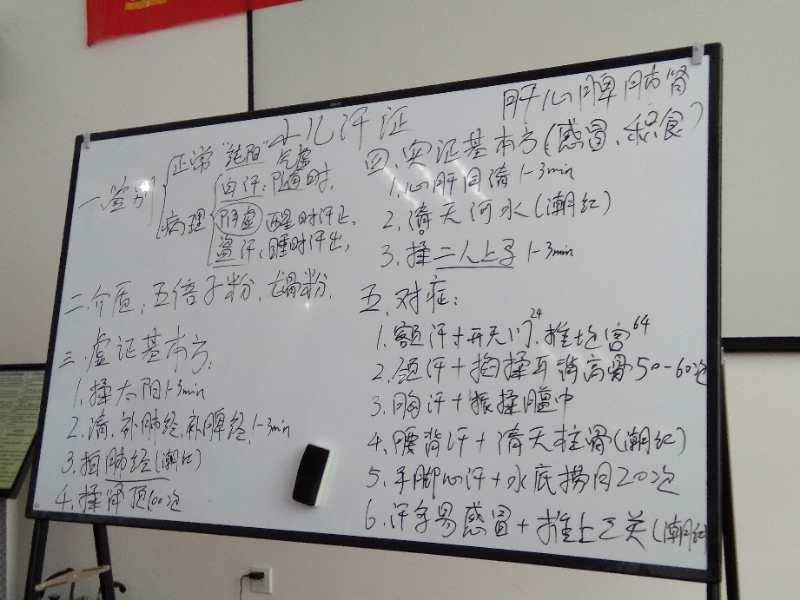 小儿汗证
肝心脾肺肾
一、鉴别
正常 "纯阳" 气虚
病理
自汗: 随时,
阴虚 醒时汗止,
盗汗: 睡时汗出,
二.介质: 五倍子粉、龙骨粉.
三.虚证基本方:
1.揉太阳1-3min
2.清.补肺经,补脾经,1-3min
3.推肺经(潮红)
4.揉肾顶100次
四、实证基本方(感冒、积食)
1.心肝同清1-3min
2.清天河水(潮红)
3.揉二人上马1-3min
五.对症:
1.额汗+开天门24、推坎宫64
2.头汗+掐揉耳后高骨50-60次
3.胸汗+振揉膻中
4.腰背汗+清天柱骨(潮红)
5.手脚心汗+水底捞月200次
6.汗多易感冒+推上三关(潮红)